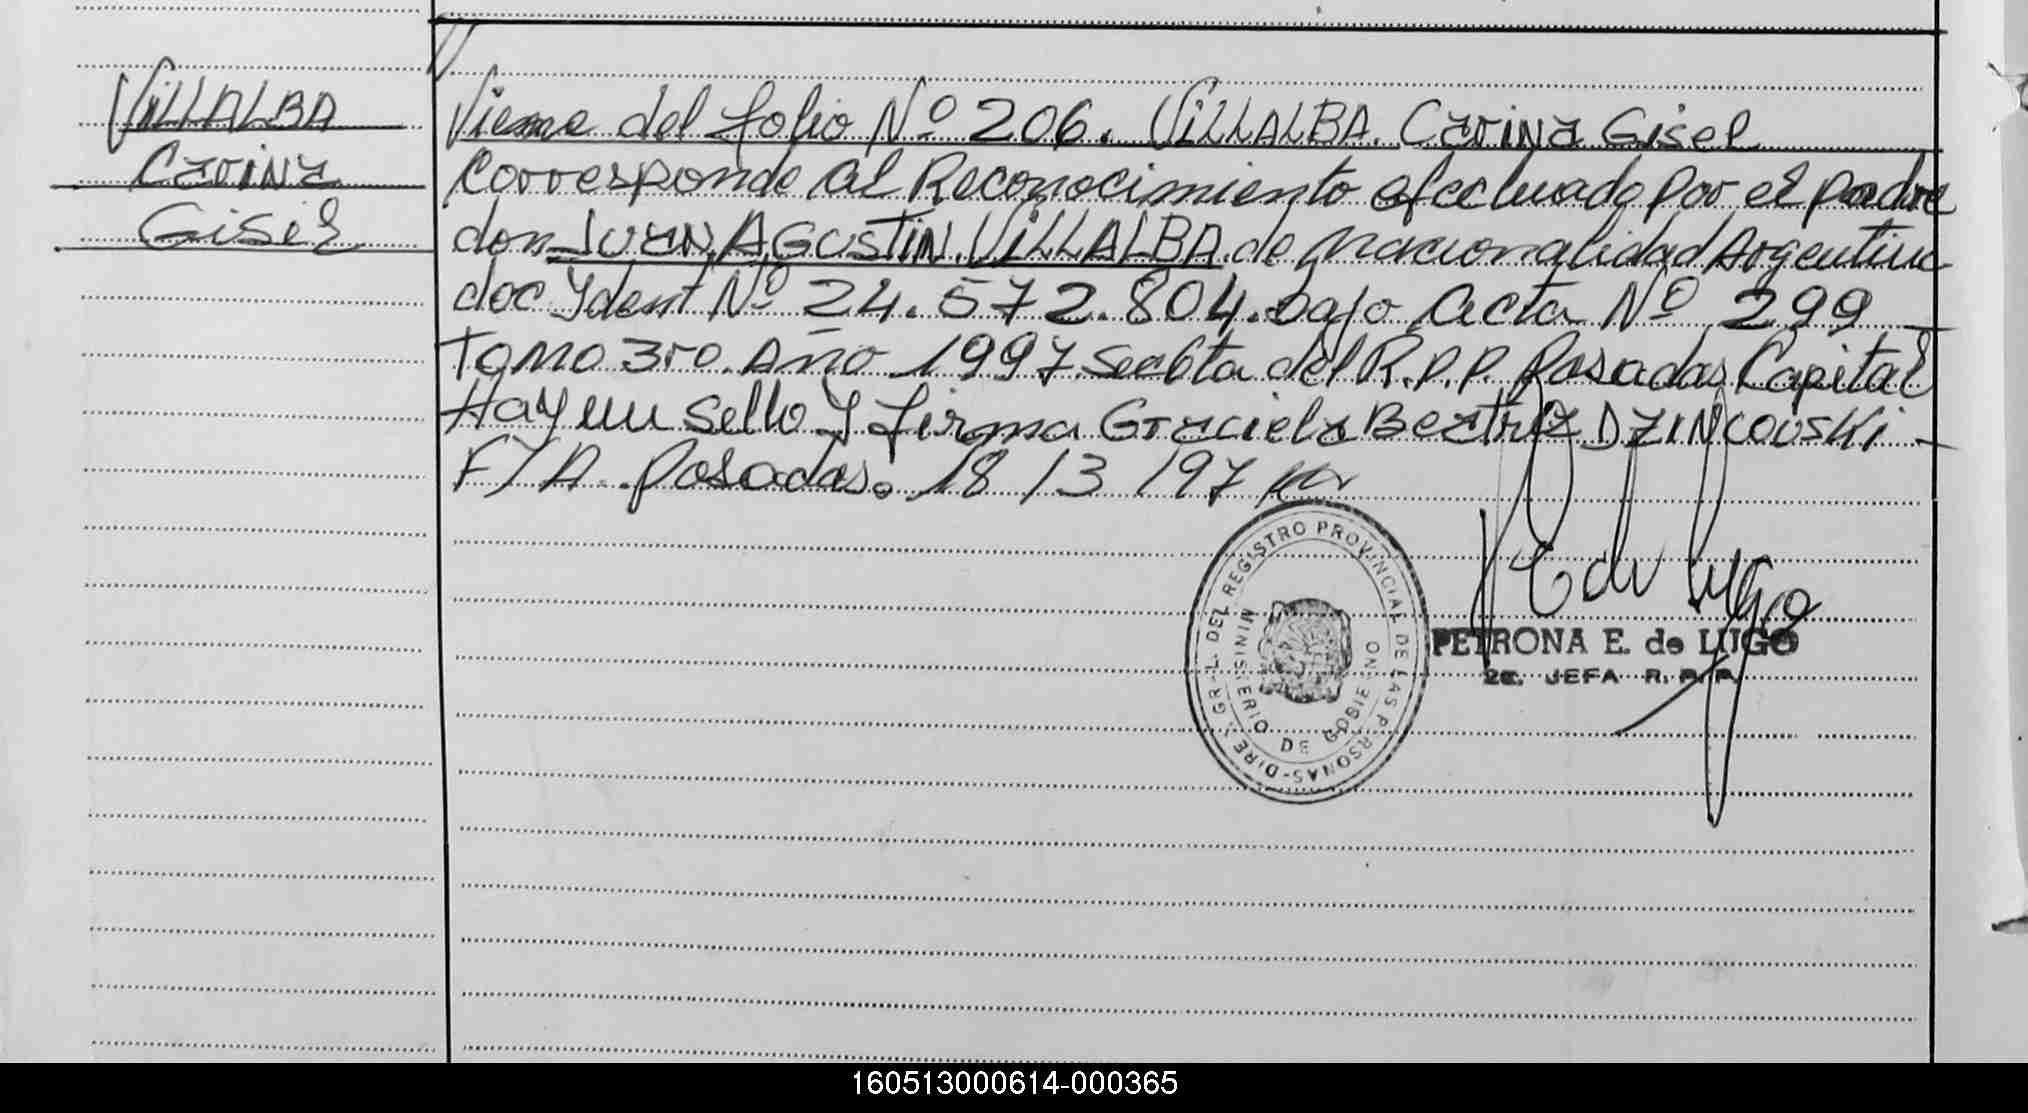 VILLALBA
Carina
Gisel
Viene del folio Nº 206. VILLALBA. Carina Gisel
Corresponde al Reconocimiento efectuado por el padre
don JUAN AGUSTIN VILLALBA de nacionalidad Argentina
doc Ydent Nº 24.572.804. bajo Acta Nº 299
Tomo 3ro. Año 1997 Secc 6ta del R.P.P. Posadas Capital
Hay un sello y firma Graciela Beatriz DZINCOVSKI -
F/A. Posadas. 18 /3 /97
DIREC. GRAL. DEL REGISTRO PROVINCIAL DE LAS PERSONAS
MINISTERIO DE GOBIERNO
P E de Lugo
PETRONA E. de LUGO
2c. JEFA R. P. P.
160513000614-000365